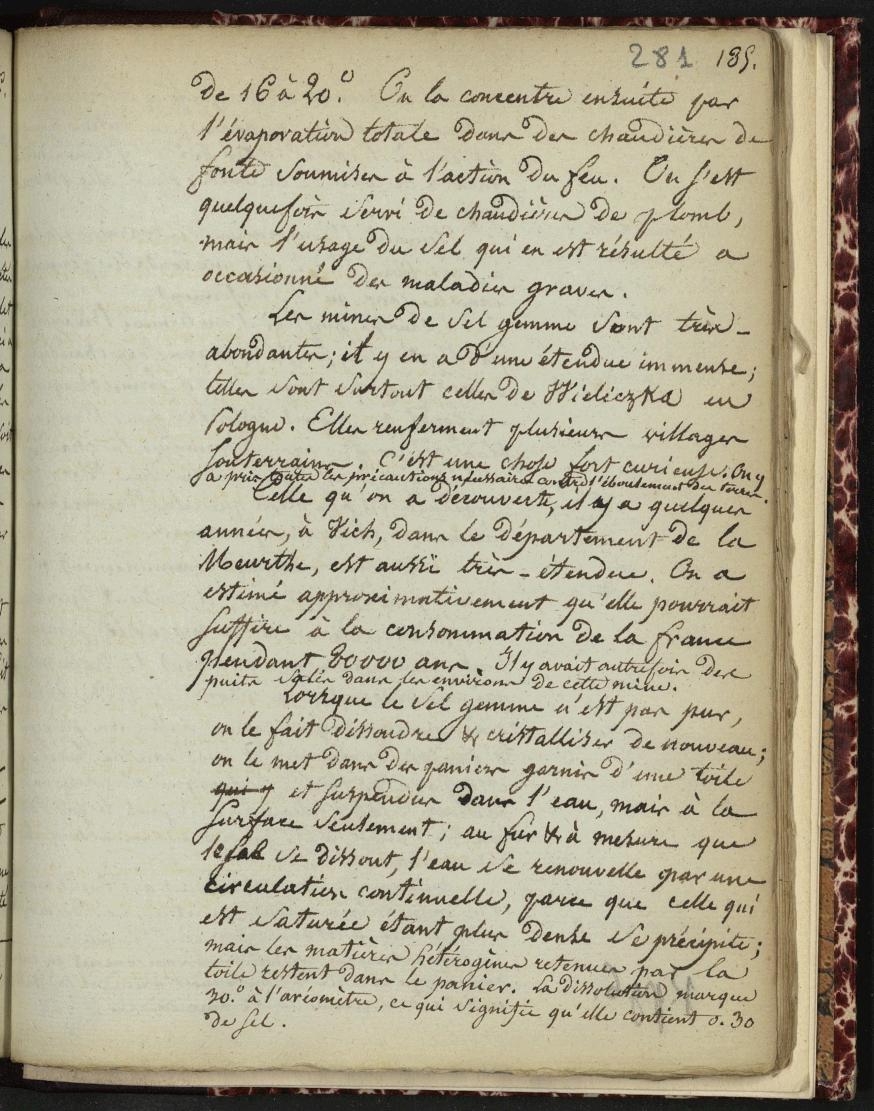 281 185.
de 16 à 20.° On la concentre ensuite par
l'évaporation totale dans des chaudières de
fonte soumises à l'action du feu. On s'est
quelquefois servi de chaudières de plomb,
mais l'usage du sel qui en est résulté a
occasionné des maladies graves.
Les mines de sel gemme sont très-
abondantes; il y en a d'une étendue immense;
telles sont surtout celles de Wieliczka en
Pologne. Elles renferment plusieurs villages
souterrains. C'est une chose fort curieuse. On y
a pris toutes les précautions nécessaires contre l'éboulement des terres.
Celle qu'on a découverte, il y a quelques
années, à Vich, dans le département de la
Meurthe, est aussi très-étendue. On a
estimé approximativement qu'elle pourrait
suffire à la consommation de la france
pendant 80000 ans. Il y avait autrefois des
puits salés dans les environs de cette mine.
Lorsque le sel gemme n'est pas pur,
on le fait dissoudre & cristalliser de nouveau;
on le met dans des paniers garnis d'une toile
qui y et suspendus dans l'eau, mais à la
surface seulement; au fur & à mesure que
le sel se dissout, l'eau se renouvelle par une
circulation continuelle, parce que celle qui
est saturée étant plus dense se précipite;
mais les matières hétérogènes retenues par la
toile restent dans le panier. La dissolution marque
30.° à l'aréomètre, ce qui signifie qu'elle contient 0.30
de sel.